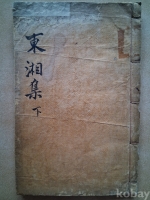 東湘集 下
kobay